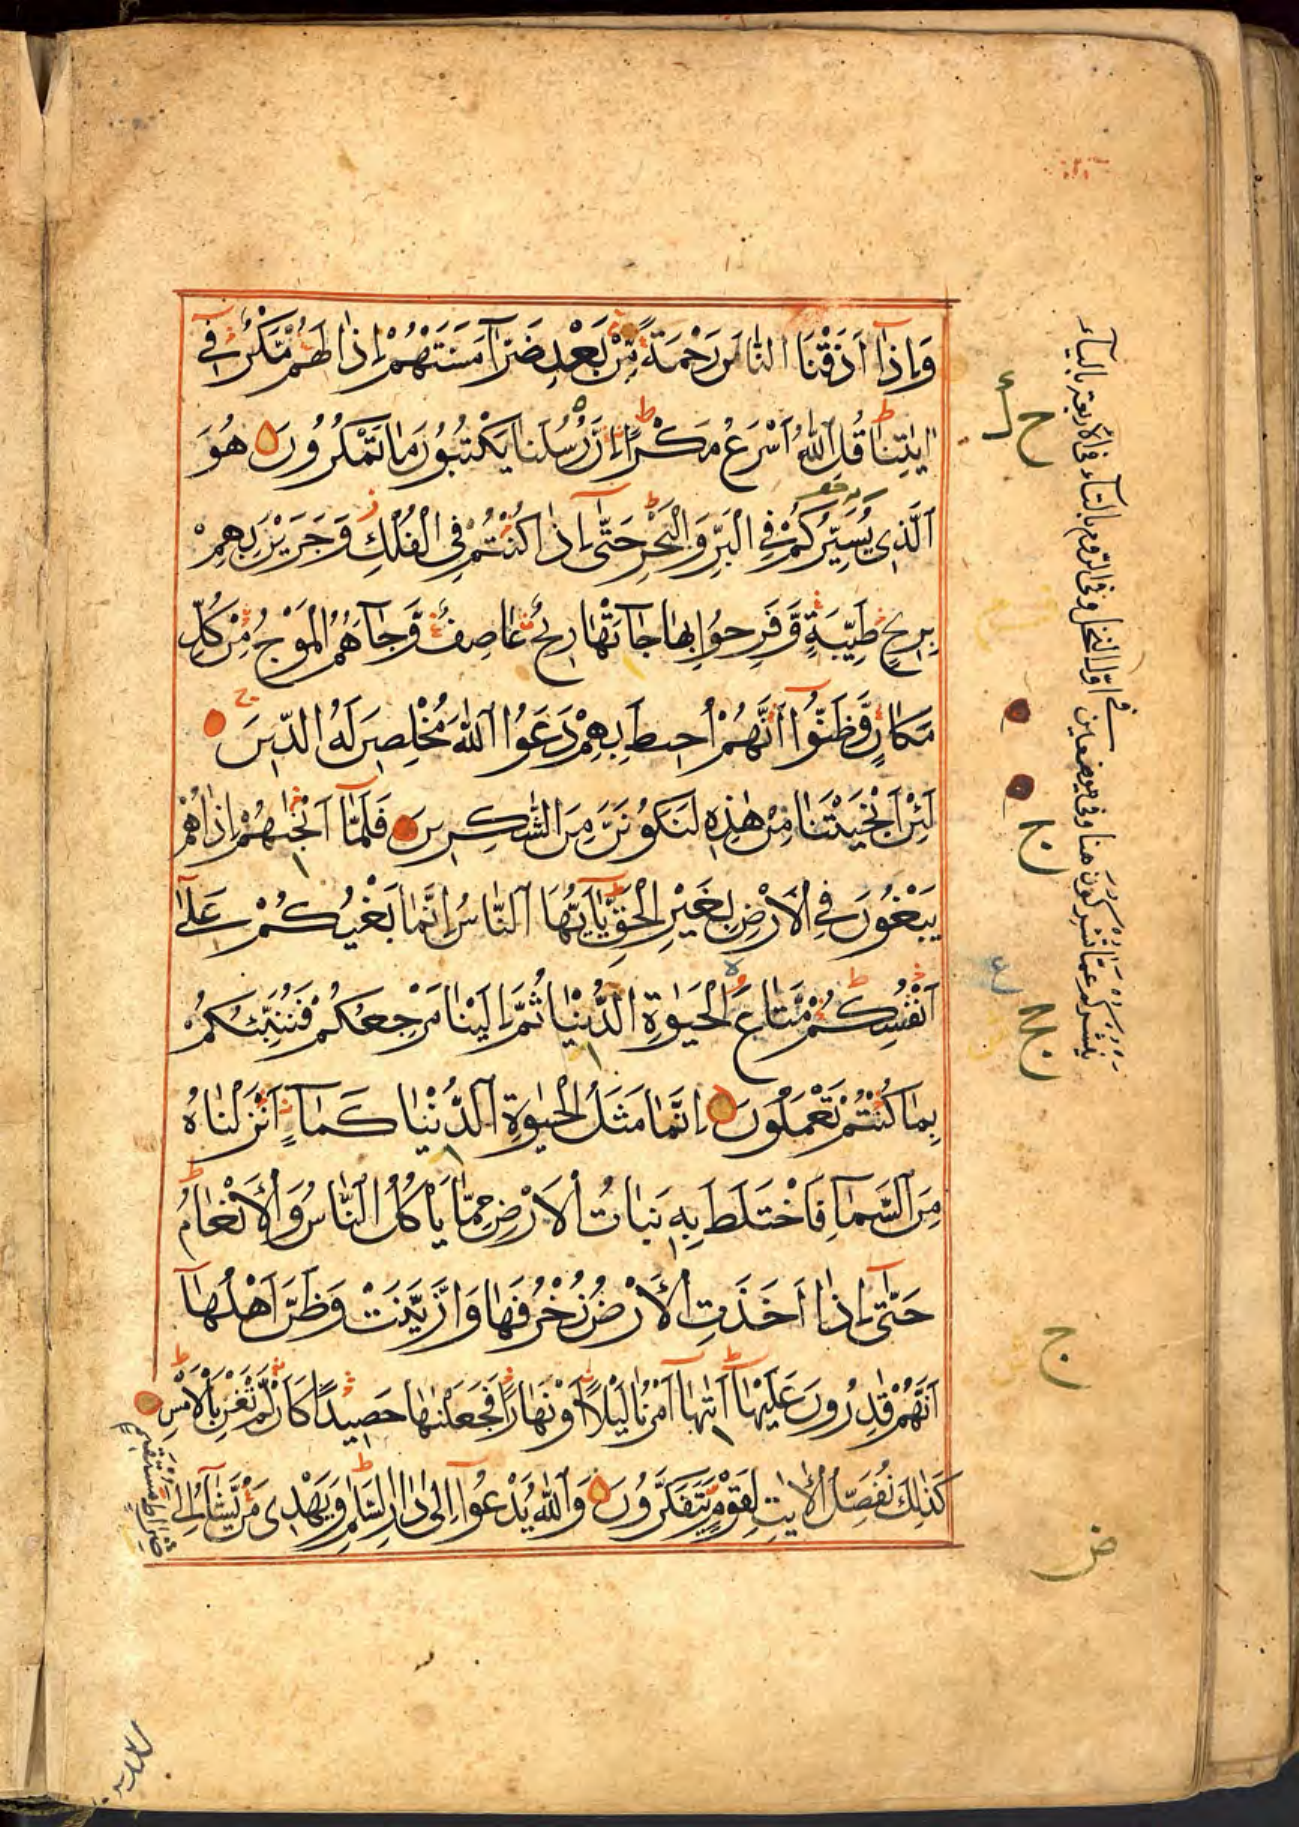 وَاِذَا اَذَقْنَا النَّاسَ رَحْمَةً مِّنْ بَعْدِ ضَرَّآ مَسَّتْهُمْ اِذَا لَهُمْ مَّكْرٌ فِي
اٰيٰتِنَا قُلِ اللّٰهُ اَسْرَعُ مَكْرًا اِنَّ رُسُلَنَا يَكْتُبُوْنَ مَا تَمْكُرُوْنَ هُوَ
الَّذِي يُسَيِّرُكُمْ فِي الْبَرِّ وَالْبَحْرِ حَتّٰى اِذَا كُنْتُمْ فِي الْفُلْكِ وَجَرَيْنَ بِهِمْ
بِرِيْحٍ طَيِّبَةٍ وَّفَرِحُوْا بِهَا جَآءَتْهَا رِيْحٌ عَاصِفٌ وَّجَآءَهُمُ الْمَوْجُ مِنْ كُلِّ
مَكَانٍ وَّظَنُّوْا اَنَّهُمْ اُحِيْطَ بِهِمْ دَعَوُا اللّٰهَ مُخْلِصِيْنَ لَهُ الدِّيْنَ
لَئِنْ اَنْجَيْتَنَا مِنْ هٰذِهِ لَنَكُوْنَنَّ مِنَ الشّٰكِرِيْنَ فَلَمَّآ اَنْجٰىهُمْ اِذَا هُمْ
يَبْغُوْنَ فِي الْاَرْضِ بِغَيْرِ الْحَقِّ يٰٓاَيُّهَا النَّاسُ اِنَّمَا بَغْيُكُمْ عَلٰٓى
اَنْفُسِكُمْ مَّتَاعَ الْحَيٰوةِ الدُّنْيَا ثُمَّ اِلَيْنَا مَرْجِعُكُمْ فَنُنَبِّئُكُمْ
بِمَا كُنْتُمْ تَعْمَلُوْنَ اِنَّمَا مَثَلُ الْحَيٰوةِ الدُّنْيَا كَمَآءٍ اَنْزَلْنَاهُ
مِنَ السَّمَآءِ فَاخْتَلَطَ بِهِ نَبَاتُ الْاَرْضِ مِمَّا يَاْكُلُ النَّاسُ وَالْاَنْعَامُ
حَتّٰٓى اِذَا اَخَذَتِ الْاَرْضُ زُخْرُفَهَا وَازَّيَّنَتْ وَظَنَّ اَهْلُهَآ
اَنَّهُمْ قٰدِرُوْنَ عَلَيْهَآ اَتٰىهَآ اَمْرُنَا لَيْلًا اَوْ نَهَارًا فَجَعَلْنٰهَا حَصِيْدًا كَاَنْ لَّمْ تَغْنَ بِالْاَمْسِ
كَذٰلِكَ نُفَصِّلُ الْاٰيٰتِ لِقَوْمٍ يَّتَفَكَّرُوْنَ وَاللّٰهُ يَدْعُوْٓا اِلٰى دَارِ السَّلٰمِ وَيَهْدِي مَنْ يَّشَآءُ اِلٰى
صِرَاطٍ مُّسْتَقِيْمٍ
يشركون عما تشركون هنا وفي موضعين في اول النحل وفي الروم بالتاء في الاربعة بالياء